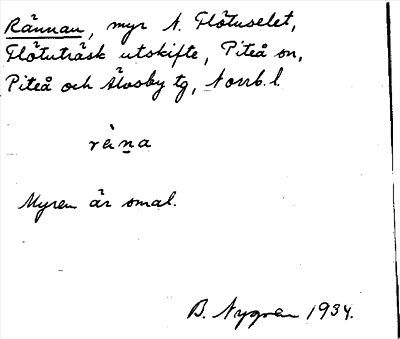 Rännan, myr N. Flötuselet,
Flötuträsk utskifte, Piteå sn,
Piteå och Älvsby tg, Norrb. l.
rèna
Myren är smal.
B. Nygren 1934.